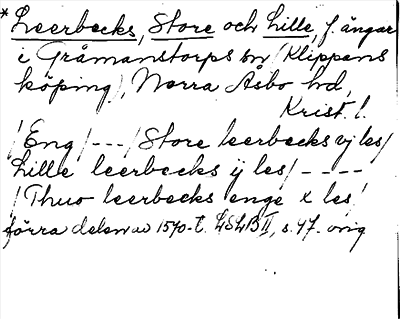 * Leerbecks, Store och Lille, f. ängar
i Gråmanstorps sn (Klippans
köping), Norra Åsbo hd,
Krist. l.
/Eng/---/Store leerbecks vj les/
Lille leerbecks ij les/----
/Thuo leerbecks enge x les/
förra delen av 1570-t. LSLB II, s. 47. orig